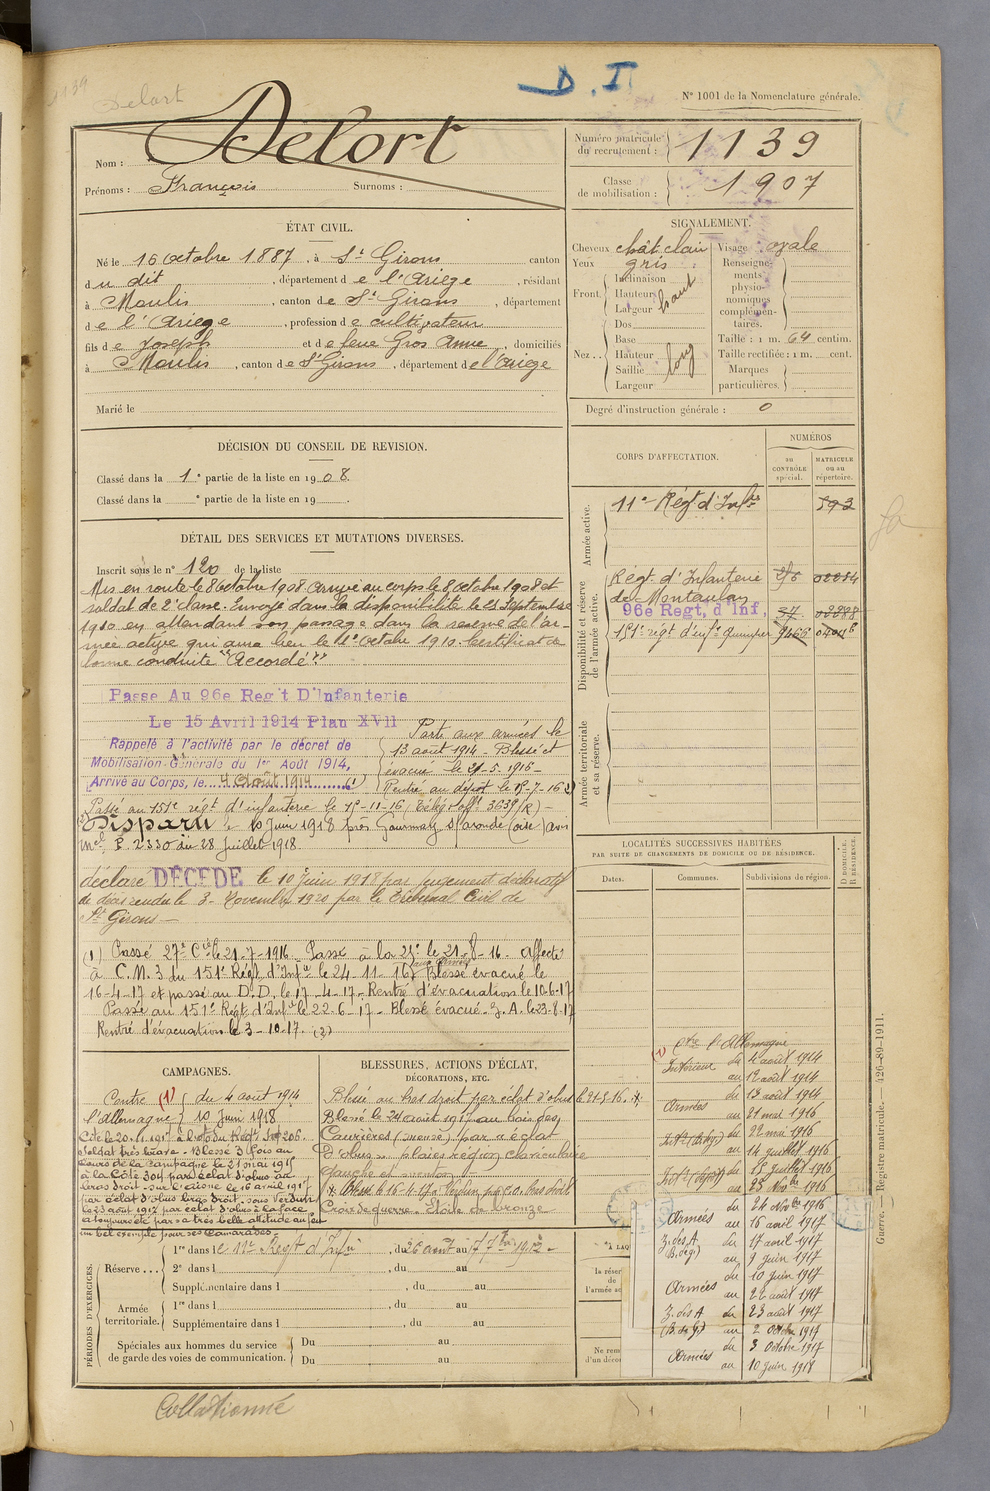 1139
Delort
D.I
N° 1001 de la Nomenclature générale.
Nom : Delort
Prénoms : François Surnoms :
Numéro matricule du recrutement : 1139
Classe de mobilisation : 1907
ÉTAT CIVIL.
Né le 16 octobre 1887, à St Girons canton
du dit, département de l'Ariège, résidant
à Moulis, canton de St Girons, département
de l'Ariège, profession de cultivateur
fils de Joseph et de feue Gros Anne, domiciliés
à Moulis, canton de St Girons, département de l'Ariège
Marié le
SIGNALEMENT.
Cheveux chât clair
Yeux gris
Front. Inclinaison
Hauteur haut
Largeur
Nez... Dos
Base
Hauteur long
Saillie
Largeur
Visage : ovale
Renseignements physionomiques complémentaires.
Taille : 1 m. 64 centim.
Taille rectifiée : 1 m. cent.
Marques particulières.
Degré d'instruction générale : 0
DÉCISION DU CONSEIL DE REVISION.
Classé dans la 1e partie de la liste en 1908.
Classé dans la e partie de la liste en 19
DÉTAIL DES SERVICES ET MUTATIONS DIVERSES.
Inscrit sous le n° 120 de la liste
Mis en route le 8 octobre 1908. Arrivé au corps le 8 octobre 1908 et
soldat de 2e classe. Envoyé dans la disponibilité le 25 septembre
1910 en attendant son passage dans la réserve de l'ar-
mée active qui aura lieu le 1er octobre 1910. Certificat de
bonne conduite "Accordé".
Passe Au 96e Reg't D'Infanterie
Le 15 Avril 1914 Plan XVII
Rappelé à l'activité par le décret de
Mobilisation Générale du 1er Août 1914,
Arrivé au Corps, le 4 Août 1914 (1)
Parti aux armées le
13 août 1914 - Blessé et
évacué le 21-5-1916 -
Rentré au dépôt le 15-7-16
Passé au 151e régt d'infanterie le 15-11-16
Disparu le 10 Juin 1918 près Gournay s/aronde (oise) avis
mel P. 2330 du 28 Juillet 1918.
déclaré DÉCÉDÉ le 10 juin 1918 par jugement déclaratif
de décès rendu le 3 Novembre 1920 par le Tribunal Civil de
St Girons -
(1) Passé 27e Cie le 21-7-1916. Passé à la 25e le 21-8-16. Affecté
à C.M.3 du 151e Régt d'Infie le 24-11-16. Blessé évacué le
16-4-17 et passé au D.D. le 17-4-17 - Rentré d'évacuation le 10-6-17
Passé au 151e Régt d'Infie le 22.6.17 - Blessé évacué Z.A. le 23-8-17
Rentré d'évacuation le 3-10-17. (2)
CORPS D'AFFECTATION.
NUMÉROS
au CONTRÔLE spécial.
MATRICULE ou au répertoire.
Armée active.
11e Régt d'Infrie 593
Disponibilité et réserve de l'armée active.
Régt d'Infanterie
de Montauban
96e Regt, d'Inf, 02298
151e régt d'infie Quimper
Armée territoriale et sa réserve.
LOCALITÉS SUCCESSIVES HABITÉES
PAR SUITE DE CHANGEMENTS DE DOMICILE OU DE RÉSIDENCE.
Dates. Communes. Subdivisions de région. D DOMICILE. R RÉSIDENCE.
(1) Ctre l'Allemagne
Intérieur du 4 août 1914
au 12 août 1914
Armées du 13 août 1914
au 21 mai 1916
du 22 mai 1916
au 14 juillet 1916
Intr (dépôt) du 15 juillet 1916
au 23 Nobre 1916
Armées du 24 Nobre 1916
au 16 avril 1917
Z. des A du 17 avril 1917
au 9 juin 1917
Armées du 10 juin 1917
au 22 août 1917
Z. des A du 23 août 1917
au 2 octobre 1917
Armées du 3 octobre 1917
au 10 juin 1918
CAMPAGNES.
Contre (1) du 4 août 1914
l'Allemagne 10 Juin 1918
Soldat très brave - Blessé 3 fois au
cours de la campagne le 21 mai 1916
à la Côte 304 par éclat d'obus au
bras droit - sur l'aisne le 16 avril 1917
par éclat d'obus bras droit - sous Verdun
le 23 août 1917 par éclat d'obus à la face
a toujours été par sa très belle attitude au feu
un bel exemple pour ses Camarades.
BLESSURES, ACTIONS D'ÉCLAT,
DÉCORATIONS, ETC.
Blessé au bras droit par éclat d'obus le 21-5-16.
Blessé le 24 août 1917 au bois des
Caurières (meuse) par éclat
d'obus - plaies région claviculaire
gauche et menton
Croix de guerre - Etoile de bronze
PÉRIODES D'EXERCICES.
Réserve... 1re dans le 11e Régt d'Infie, du 26 août au 17 7bre 1912 -
2e dans l , du au
Supplémentaire dans l , du au
Armée territoriale. 1re dans l , du au
Supplémentaire dans l , du au
Spéciales aux hommes du service
de garde des voies de communication. Du au
Du au
Guerre. — Registre matricule. 426-89-1911.
Collationné